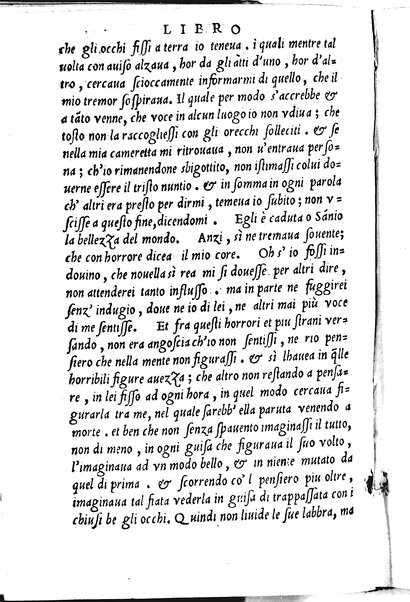 LIBRO
che gli occhi fissi a terra io teneua. i quali mentre tal
uolta con auiso alzaua, hor da gli atti d'uno, hor d'al-
tro, cercaua scioccamente informarmi di quello, che il
mio tremor sospiraua. Il quale per modo s'accrebbe &
a tāto venne, che voce in alcun luogo io non vdiua; che
tosto non la raccogliessi con gli orecchi solleciti. & se
nella mia cameretta mi ritrouaua, non u'entraua perso-
na; ch'io rimanendone sbigottito, non istimassi colui do-
uerne essere il tristo nuntio. & in somma in ogni parola
ch'altri era presto per dirmi, temeua io subito; non v-
scisse a questo fine, dicendomi. Egli è caduta o Sānio
la bellezza del mondo. Anzi, sì ne tremaua souente;
che con horrore dicea il mio core. Oh s'io fossi in-
douino, che nouella sì rea mi si douesse per altri dire,
non attenderei tanto influsso. ma in parte ne fuggirei
senz'indugio, doue ne io di lei, ne altri mai più voce
di me sentisse. Et fra questi horrori et piu strani ver-
sando, non era angoscia ch'io non sentissi, ne rio pen-
siero che nella mente non figurassi. & sì lhauea in q̄lle
horribili figure auezza; che altro non restando a pensa-
re, in lei fisso ad ogni hora, in quel modo cercaua fi-
gurarla tra me, nel quale sareb' ella paruta venendo a
morte. et ben che non senza spauento imaginassi il tutto,
non di meno, in ogni guisa che figuraua il suo volto,
l'imaginaua ad vn modo bello, & in niente mutato da
quel di prima. & scorrendo co'l pensiero piu oltre,
imaginaua tal fiata vederla in guisa di trappassata con i
chiusi be gli occhi. Quindi non liuide le sue labbra, ma